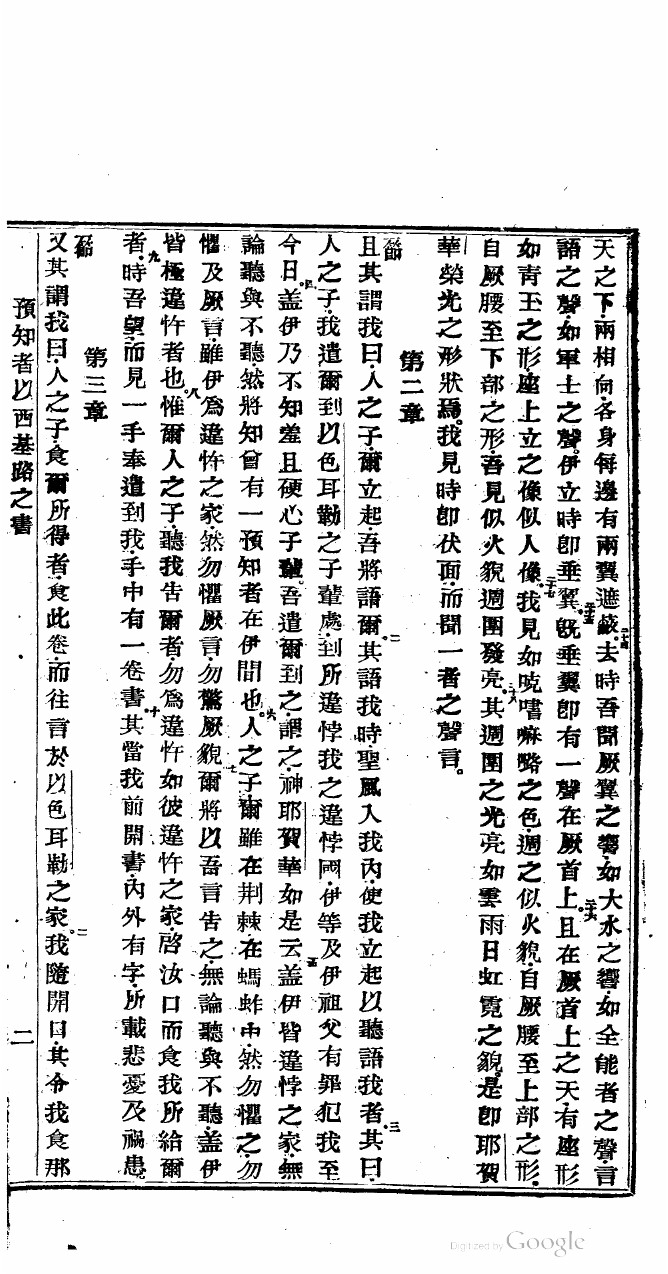 天之下兩相向各身每邊有兩翼遮蔽。二十四去時吾聞厥翼之響如大水之響如全能者之聲言
語之聲如軍士之聲。伊立時卽垂翼。二十五旣垂翼卽有一聲在厥首上。二十六且在厥首上之天有座形
如靑玉之形座上立之像似人像。二十七我見如㖸𠶜嘛咯之色週之似火貌自厥腰至上部之形。
自厥腰至下部之形吾見似火貌週圍發亮。二十八其週圍之光亮如雲雨日虹霓之貌。是卽耶賀
華榮光之形狀焉。我見時卽伏面而聞一者之聲言。
第二章
節
且其謂我曰人之子爾立起吾將語爾。二其語我時聖風入我內使我立起以聽語我者。三其曰
人之子我遣爾到以色耳勒之子輩處到所違悖我之違悖國伊等及伊祖父有罪犯我至
今日。四盖伊乃不知羞且硬心子輩。吾遣爾到之謂之神耶賀華如是云。五盖伊皆違悖之家無
論聽與不聽然將知曾有一預知者在伊間也。六人之子爾雖在荆棘在螞蚱中然勿懼之勿
懼及厥言雖伊爲違忤之家然勿懼厥言勿驚厥貌。七爾將以吾言告之無論聽與不聽盖伊
皆極違忤者也。八惟爾人之子聽我告爾者勿爲違忤如彼違忤之家啓汝口而食我所給爾
者。九時吾望而見一手奉遣到我手中有一卷書。十其當我前開書內外有字所載悲憂及禍患。
第三章
節
又其謂我曰人之子食爾所得者食此卷而往言於以色耳勒之家。二我隨開口其令我食那
預知者以西基路之書
二
Digitized by Google